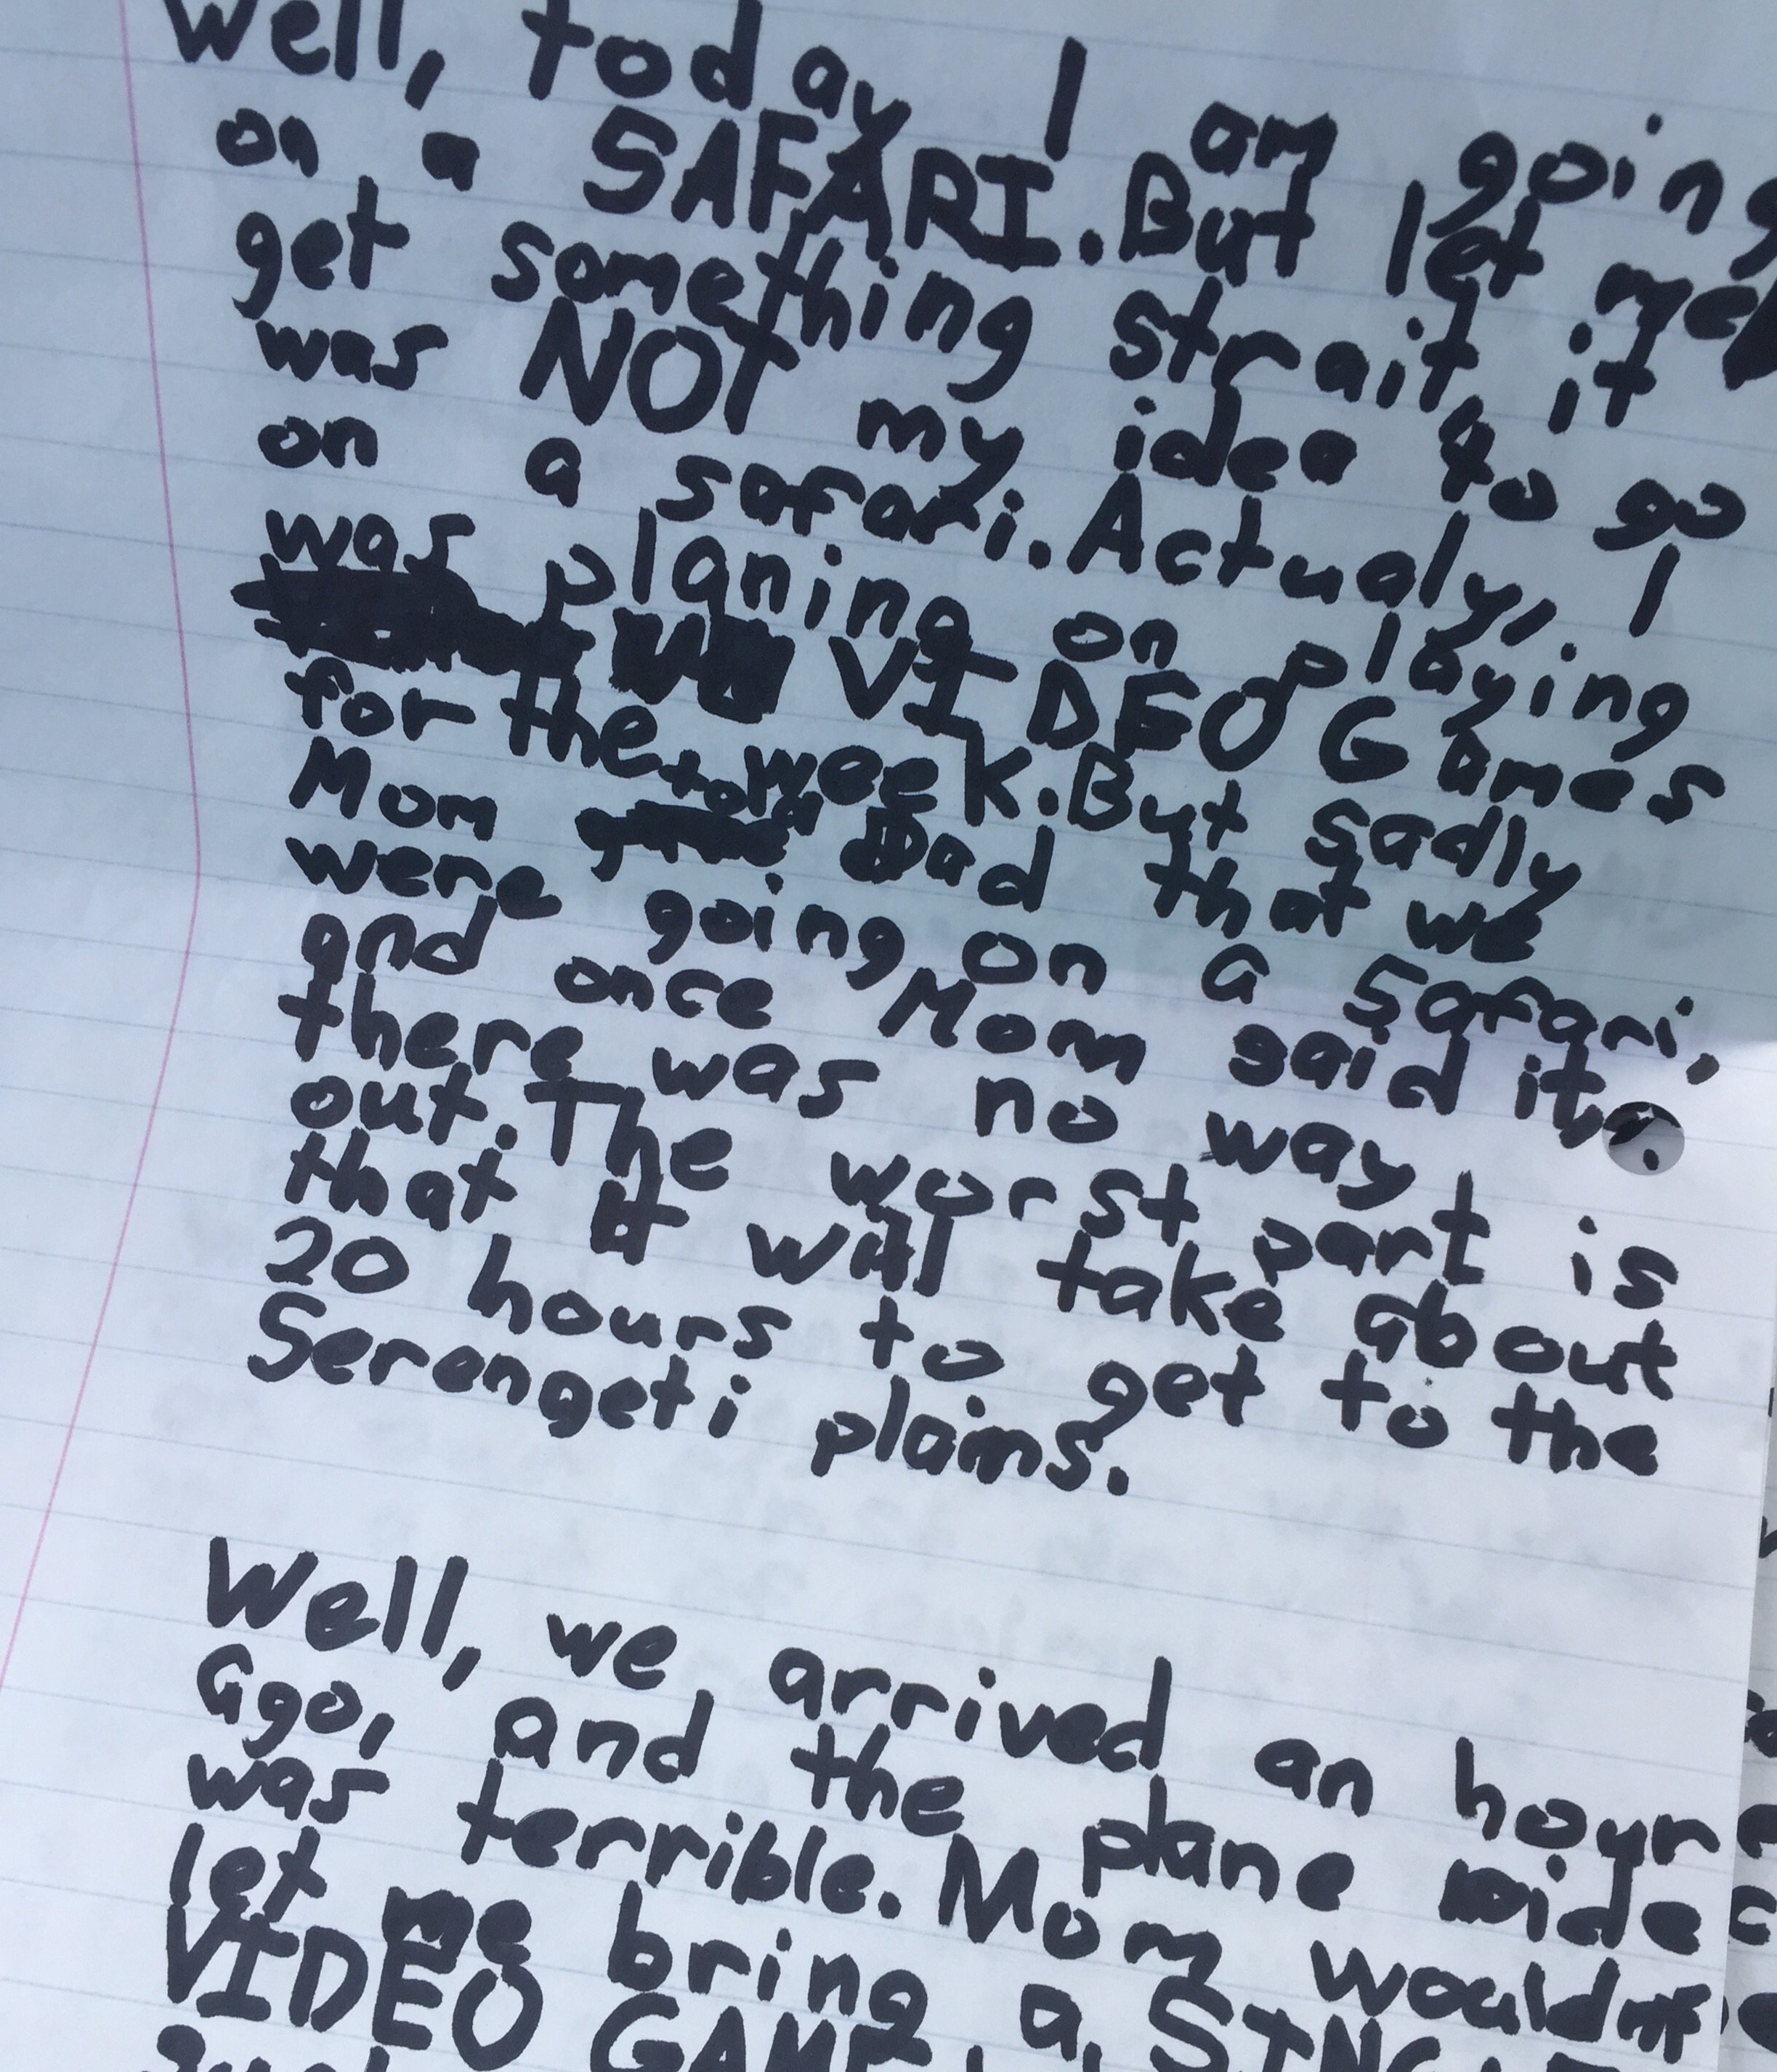 Well, today I am going
on a SAFARI. But let me
get something strait, it
was NOT my idea to go
on a safari. Actualy, I
was planing on playing
VIDEO Games
for the week. But sadly
Mom told Dad that we
were going on a Safari,
and once Mom said it,
there was no way
out. The worst part is
that it will take about
20 hours to get to the
Serengeti plains.
Well, we arrived an hour
ago, and the plane ride
was terrible. Mom wouldnt
let me bring a
VIDEO GAME